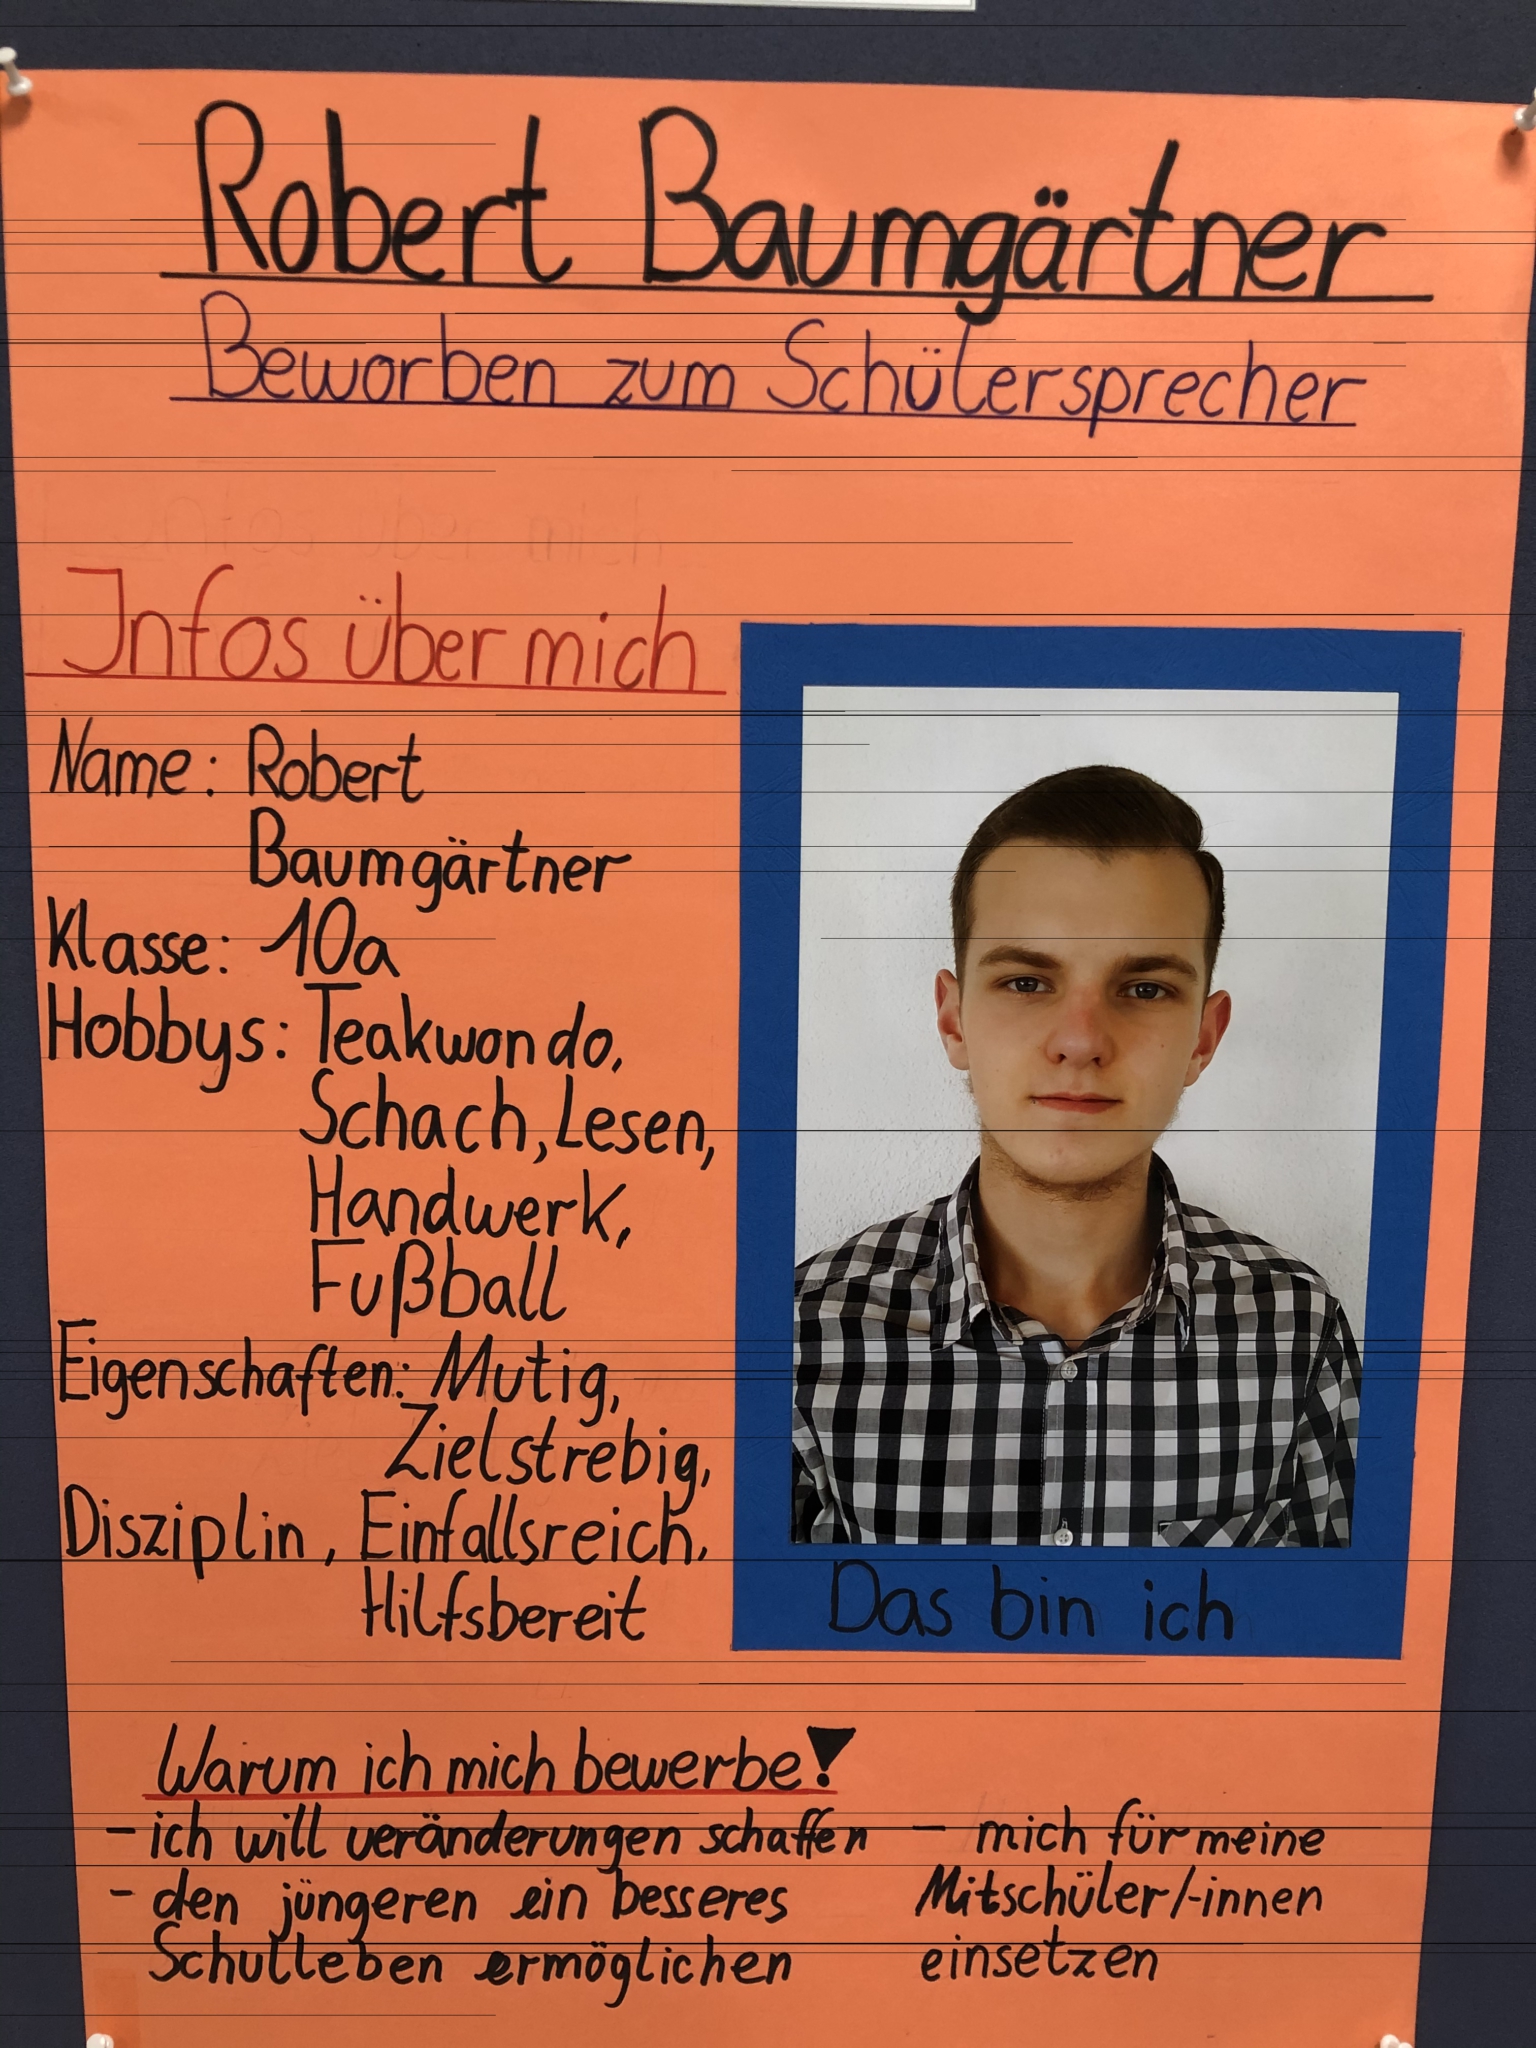 Robert Baumgärtner
Beworben zum Schülersprecher
Infos über mich
Name: Robert
Baumgärtner
Klasse: 10a
Hobbys: Teakwondo,
Schach, Lesen,
Handwerk,
Fußball
Eigenschaften: Mutig,
Zielstrebig,
Disziplin, Einfallsreich,
Hilfsbereit
Das bin ich
Warum ich mich bewerbe!
- ich will veränderungen schaffen
- den jüngeren ein besseres
Schulleben ermöglichen
- mich für meine
Mitschüler/-innen
einsetzen